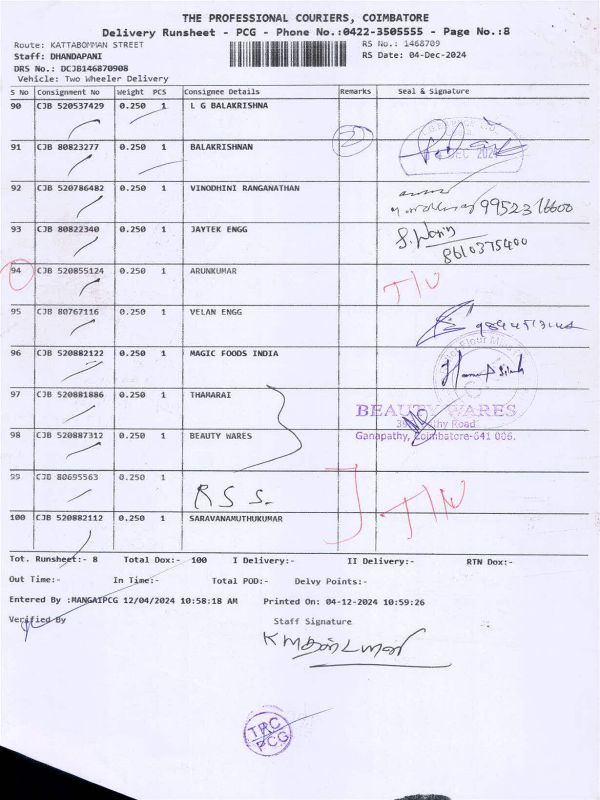 THE PROFESSIONAL COURIERS, COIMBATORE
Delivery Runsheet - PCG - Phone No.:0422-3505555 - Page No.:8
Route: KATTABOMMAN STREET RS No.: 1468709
Staff: DHANDAPANI RS Date: 04-Dec-2024
DRS No.: DCJB146870908
Vehicle: Two Wheeler Delivery
S No Consignment No Weight PCS Consignee Details Remarks Seal & Signature
90 CJB 520537429 0.250 1 L G BALAKRISHNA
91 CJB 80823277 0.250 1 BALAKRISHNAN 2 DEC 202
92 CJB 520786482 0.250 1 VINODHINI RANGANATHAN 9952316600
93 CJB 80822340 0.250 1 JAYTEK ENGG 8610375400
94 CJB 520855124 0.250 1 ARUNKUMAR
95 CJB 80767116 0.250 1 VELAN ENGG
96 CJB 520882122 0.250 1 MAGIC FOODS INDIA
97 CJB 520881886 0.250 1 THAMARAI
BEAUTY WARES
Road
98 CJB 520887312 0.250 1 BEAUTY WARES Ganapathy, Coimbatore-641 006.
99 CJB 80695563 0.250 1 R S S.
100 CJB 520882112 0.250 1 SARAVANAMUTHUKUMAR
Tot. Runsheet:- 8 Total Dox:- 100 I Delivery:- II Delivery:- RTN Dox:-
Out Time:- In Time:- Total POD:- Delvy Points:-
Entered By :MANGAIPCG 12/04/2024 10:58:18 AM Printed On: 04-12-2024 10:59:26
Verified By Staff Signature
TRC
PCG